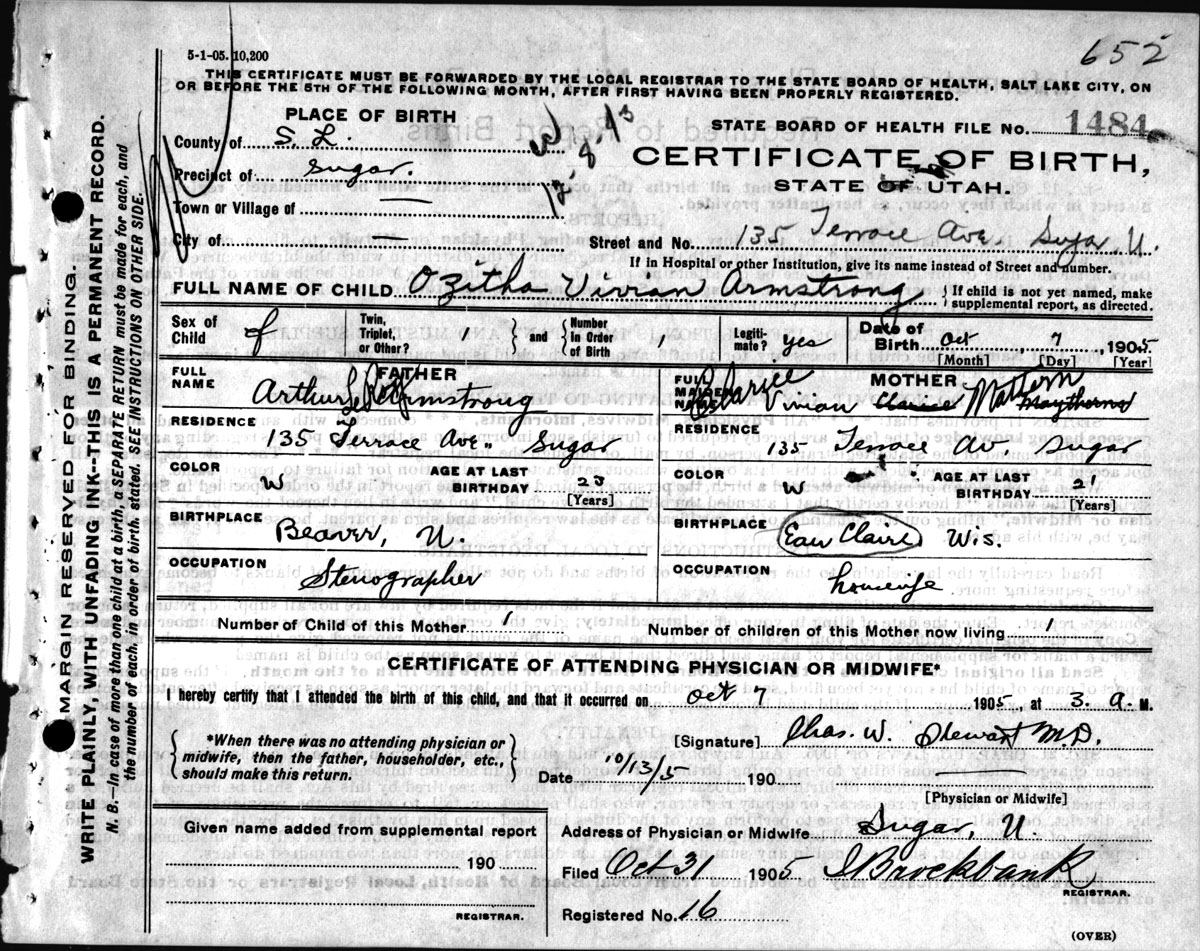 652
5-1-05. 10,200
THIS CERTIFICATE MUST BE FORWARDED BY THE LOCAL REGISTRAR TO THE STATE BOARD OF HEALTH, SALT LAKE CITY, ON
OR BEFORE THE 5TH OF THE FOLLOWING MONTH, AFTER FIRST HAVING BEEN PROPERLY REGISTERED.
PLACE OF BIRTH
STATE BOARD OF HEALTH FILE NO. 1484
County of S. L.
CERTIFICATE OF BIRTH,
Precinct of Sugar.
STATE OF UTAH.
Town or Village of —
City of —
Street and No. 135 Terrace Ave. Sugar U.
If in Hospital or other Institution, give its name instead of Street and number.
FULL NAME OF CHILD Ozitha Vivian Armstrong { If child is not yet named, make supplemental report, as directed.
Sex of Child f Twin, Triplet, or Other? 1 } and { Number in Order of Birth 1 Legitimate? yes Date of Birth Oct 7, 1905
[Month] [Day] [Year]
FATHER
FULL NAME
Arthur Armstrong
RESIDENCE
135 Terrace Ave. Sugar
COLOR W AGE AT LAST BIRTHDAY 23
[Years]
BIRTHPLACE
Beaver, U.
OCCUPATION
Stenographer
MOTHER
FULL MAIDEN NAME
Vivian Claire Mattern
RESIDENCE
135 Terrace Av Sugar
COLOR W AGE AT LAST BIRTHDAY 21
[Years]
BIRTHPLACE
Eau Claire Wis.
OCCUPATION
housewife
Number of Child of this Mother 1 Number of children of this Mother now living 1
CERTIFICATE OF ATTENDING PHYSICIAN OR MIDWIFE*
I hereby certify that I attended the birth of this child, and that it occurred on Oct 7 1905, at 3. a. M.
{ *When there was no attending physician or midwife, then the father, householder, etc., should make this return. }
[Signature] Chas. W. Stewart M.D.
Date 10/13/5 190
[Physician or Midwife]
Given name added from supplemental report
190
REGISTRAR.
Address of Physician or Midwife Sugar, U.
Filed Oct 31 1905 Brockbank
REGISTRAR.
Registered No. 16
(OVER)
MARGIN RESERVED FOR BINDING.
WRITE PLAINLY, WITH UNFADING INK--THIS IS A PERMANENT RECORD.
N. B.—In case of more than one child at a birth, a SEPARATE RETURN must be made for each, and
the number of each, in order of birth, stated. SEE INSTRUCTIONS ON OTHER SIDE.